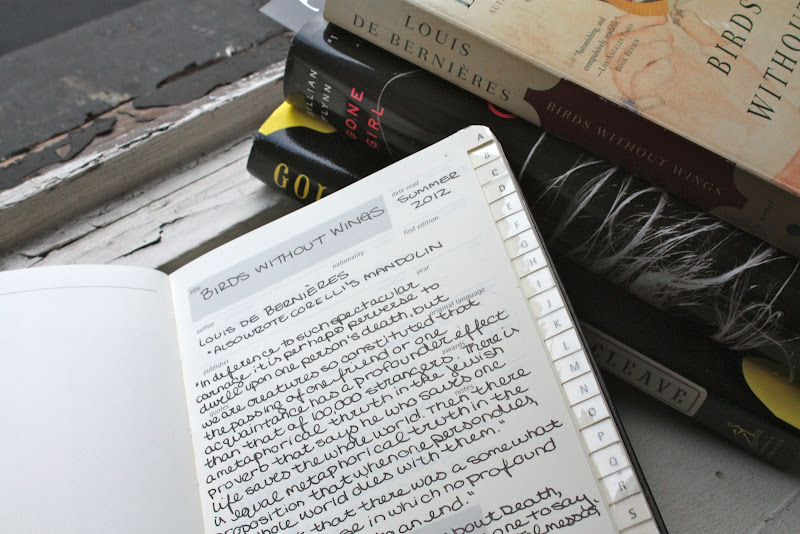 LOUIS
DE BERNIÈRES
BIRDS WITHOUT WINGS
a novel
BIRDS
WITHOUT
"Astonishing, and
compulsively readable."
—LOS ANGELES TIMES
BOOK REVIEW
GILLIAN
FLYNN
GONE
GIRL
GOL
CLEAVE
date read
SUMMER
2012
title
BIRDS WITHOUT WINGS
first edition
nationality
author
LOUIS DE BERNIÈRES
year
*ALSO WROTE CORELLI'S MANDOLIN
publisher
original language
awards
quotes
notes
"In deference to such spectacular
carnage it is perhaps perverse to
dwell upon one person's death, but
we are creatures so constituted that
the passing of one friend or one
acquaintance has a profounder effect
than that of 100,000 strangers. There is
a metaphorical truth in the Jewish
proverb that says he who saves one
life saves the whole world. Then there
is equal metaphorical truth in the
proposition that when one person dies,
whole world dies with them."
that there was a somewhat
in which no profound
an end."
about death,
one to say,
A
B
C
D
E
F
G
H
I
J
K
L
M
N
O
P
Q
R
S